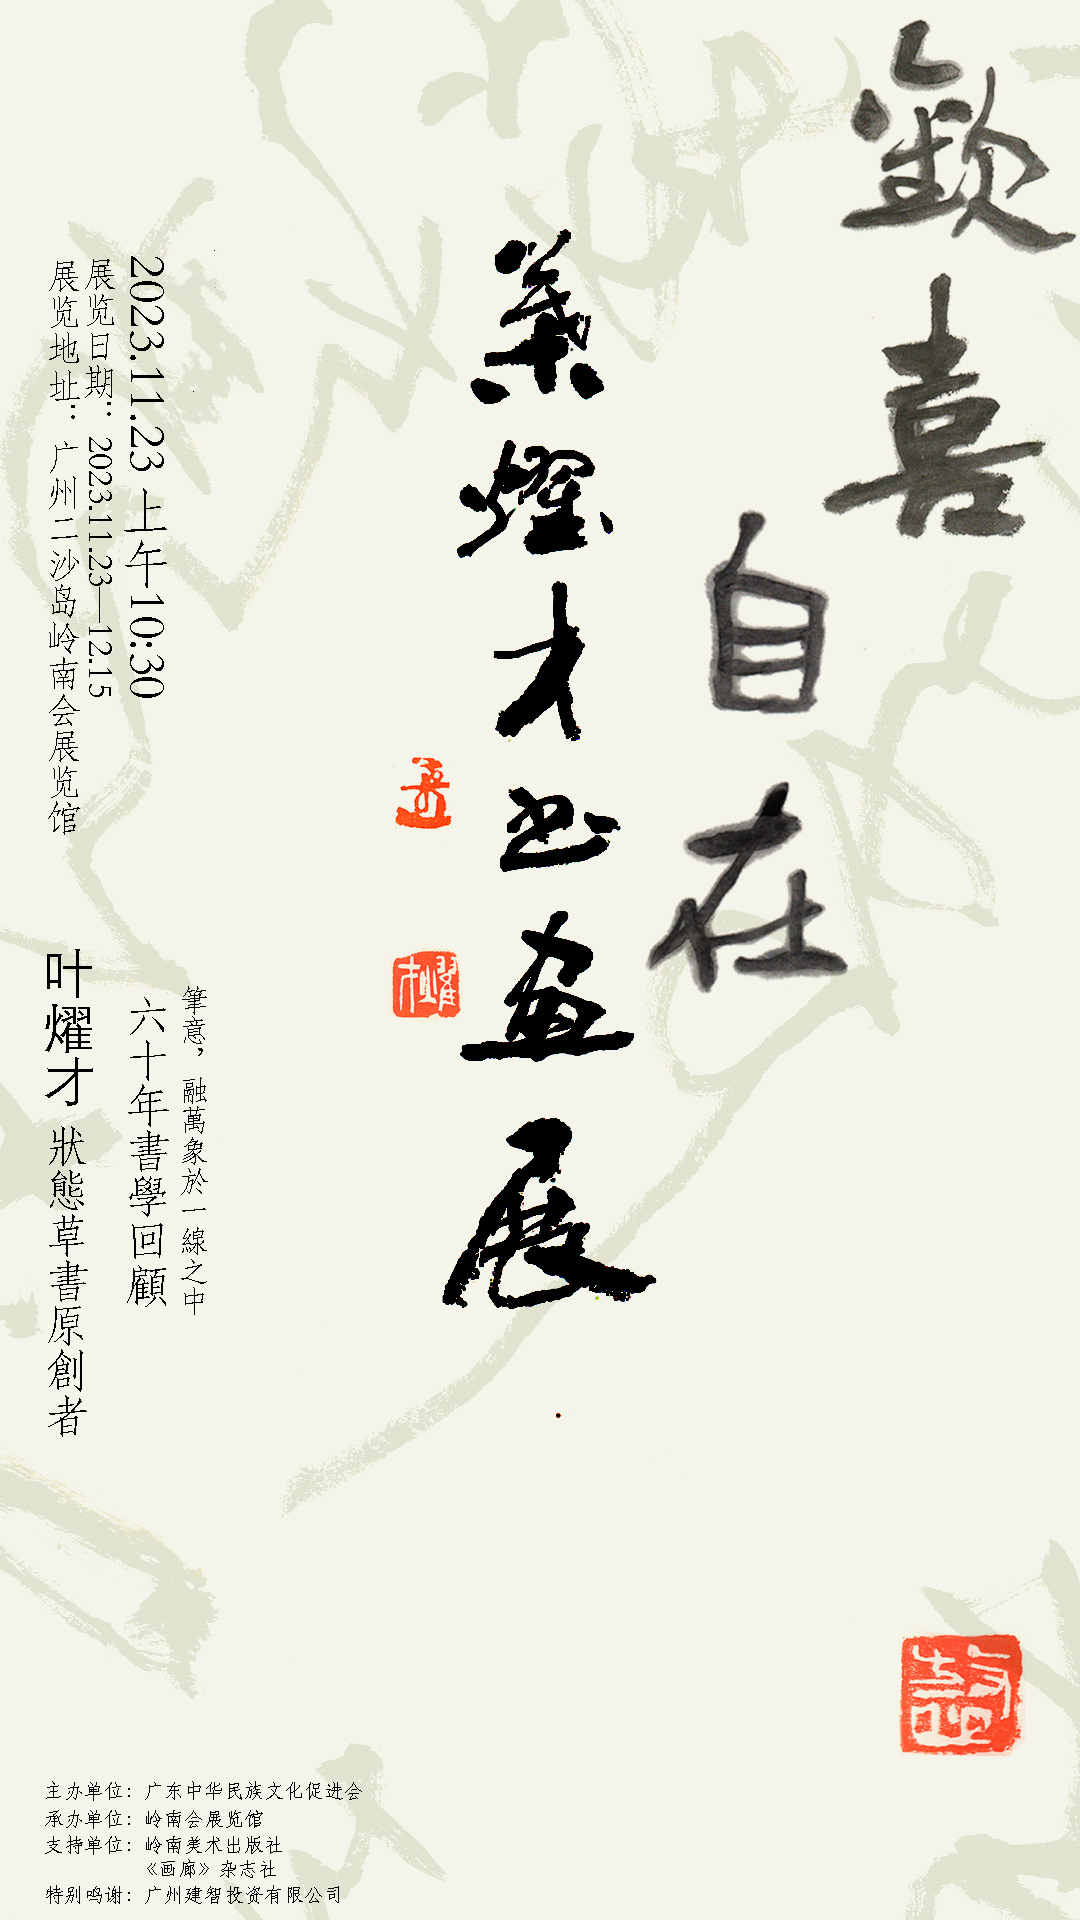 歡喜
自在
葉燿才书畫展
2023.11.23 上午10:30
展览日期：2023.11.23—12.15
展览地址：广州二沙岛岭南会展览馆
筆意，融萬象於一線之中
六十年書學回顧
叶燿才 狀態草書原創者
主办单位：广东中华民族文化促进会
承办单位：岭南会展览馆
支持单位：岭南美术出版社
《画廊》杂志社
特别鸣谢：广州建智投资有限公司